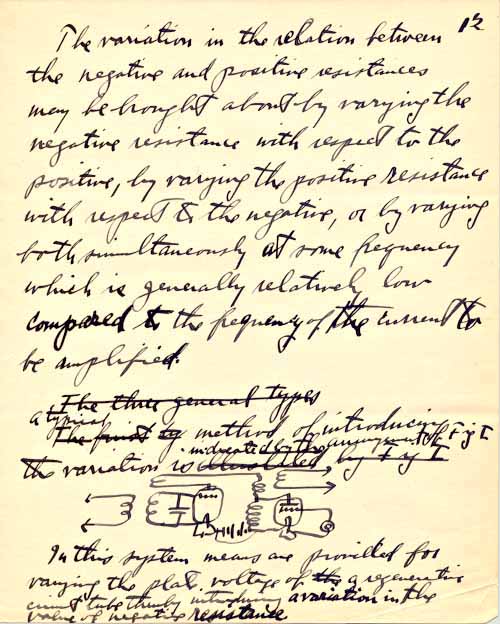 12
The variation in the relation between
the negative and positive resistances
may be brought about by varying the
negative resistance with respect to the
positive, by varying the positive resistance
with respect to the negative, or by varying
both simultaneously at some frequency
which is generally relatively low
compared to the frequency of the current to
be amplified.
The three general types
a typical
The first method of introducing
indicated by the arrangement of Fig I
the variation is illustrated by Fig I
In this system means are provided for
varying the plate voltage of the a regenerative
circuit tube thereby introducing a variation in the
value of negative resistance